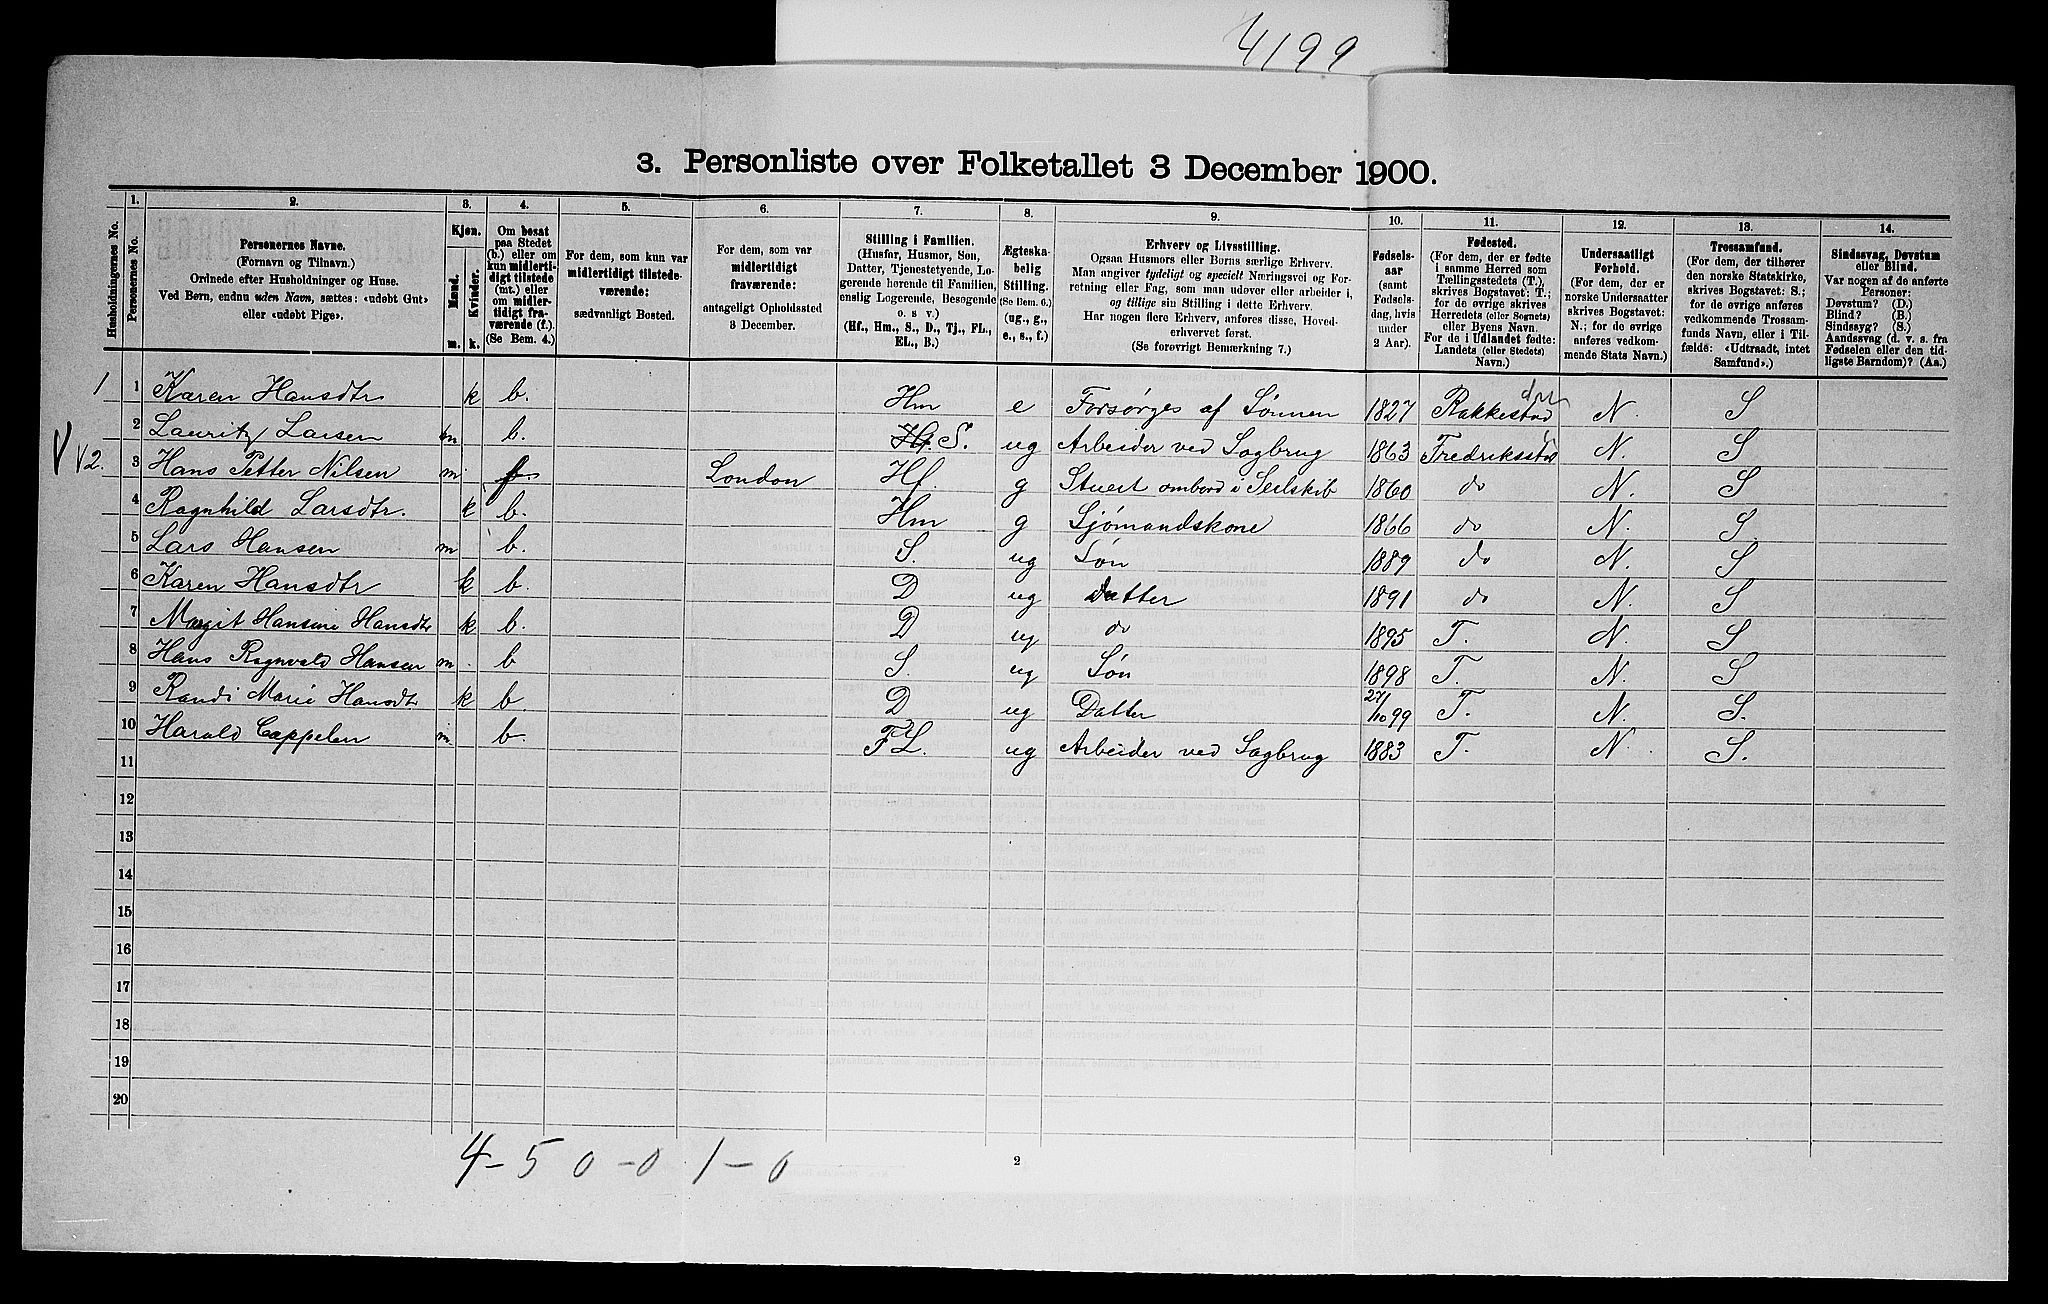 4199
3. Personliste over Folketallet 3 December 1900.
Husholdningernes No.
1.
Personernes No.
2.
Personernes Navne.
(Fornavn og Tilnavn.)
Ordnede efter Husholdninger og Huse.
Ved Børn, endnu uden Navn, sættes: «udøbt Gut»
eller «udøbt Pige».
3.
Kjøn.
Mænd.
Kvinder.
m. k.
4.
Om bosat
paa Stedet
(b.) eller om
kun midlerti-
digt tilstede
(mt.) eller
om midler-
tidigt fra-
værende (f.).
(Se Bem. 4.)
5.
For dem, som kun var
midlertidigt tilstede-
værende:
sædvanligt Bosted.
6.
For dem, som var
midlertidigt
fraværende:
antageligt Opholdssted
3 December.
7.
Stilling i Familien.
(Husfar, Husmor, Søn,
Datter, Tjenestetyende, Lo-
gerende hørende til Familien,
enslig Logerende, Besøgende
o. s. v.)
(Hf., Hm., S., D., Tj., FL.,
EL., B.)
8.
Ægteska-
belig
Stilling.
(Se Bem. 6.)
(ug., g.,
e., s., f.)
9.
Erhverv og Livsstilling.
Ogsaa Husmors eller Børns særlige Erhverv.
Man angiver tydeligt og specielt Næringsvei og For-
retning eller Fag, som man udøver eller arbeider i,
og tillige sin Stilling i dette Erhverv.
Har nogen flere Erhverv, anføres disse, Hoved-
erhvervet først.
(Se forøvrigt Bemærkning 7.)
10.
Fødsels-
aar
(samt
Fødsels-
dag, hvis
under
2 Aar).
11.
Fødested.
(For dem, der er fødte
i samme Herred som
Tællingsstedets (T.),
skrives Bogstavet: T.;
for de øvrige skrives
Herredets (eller Sognets)
eller Byens Navn.
For de i Udlandet fødte:
Landets (eller Stedets)
Navn.)
12.
Undersaatligt
Forhold.
(For dem, der er
norske Undersaatter
skrives Bogstavet:
N.; for de øvrige
anføres vedkom-
mende Stats Navn.)
13.
Trossamfund.
(For dem, der tilhører
den norske Statskirke,
skrives Bogstavet: S.;
for de øvrige anføres
vedkommende Trossam-
funds Navn, eller i Til-
fælde: «Udtraadt, intet
Samfund».)
14.
Sindssvag, Døvstum
eller Blind.
Var nogen af de anførte
Personer:
Døvstum? (D.)
Blind? (B.)
Sindssyg? (S.)
Aandssvag (d. v. s. fra
Fødselen eller den tid-
ligste Barndom)? (Aa.)
1 1 Karen Hansdtr k b. Hm e Forsørges af Sønnen 1827 Rakkestad N. S
2 Lauritz Larsen m b. Hf S. ug Arbeider ved Sagbrug 1863 Fredriksstad N. S
2. 3 Hans Petter Nilsen m f. London Hf. g Stuert ombord i Seilskib 1860 do N. S
4 Ragnhild Larsdtr. k b. Hm g Sjømandskone 1866 do N. S.
5 Lars Hansen m b. S. ug Søn 1889 do N. S
6 Karen Hansdtr k b. D ug Datter 1891 do N. S
7 Margit Hansine Hansdtr k b. D ug do 1895 T. N. S
8 Hans Ragnvald Hansen m. b S. ug Søn 1898 T. N. S
9 Randi Marie Hansdtr k b D ug Datter 27/10 99 T. N. S.
10 Harald Cappelen m. b. FL. ug Arbeider ved Sagbrug 1883 T. N. S.
11
12
13
14
15
16
17
18
19
20
4-5 0-0 1-0
2